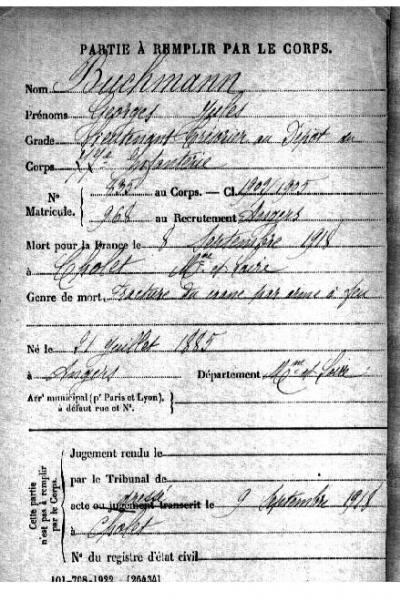 PARTIE À REMPLIR PAR LE CORPS.
Nom Buchmann
Prénoms Georges Jules
Grade Lieutenant Trésorier au Dépôt du
Corps Infanterie
N° Matricule. { 835 au Corps. — Cl. 1909/1905
968 au Recrutement Angers
Mort pour la France le 8 Septembre 1918
à Cholet Mne et Loire
Genre de mort Fracture du crane par arme à feu
Né le 21 Juillet 1885
à Angers Département Mne et Loire
Arrt municipal (pr Paris et Lyon), à défaut rue et N°. }
Cette partie n'est pas à remplir par le Corps.
Jugement rendu le
par le Tribunal de
acte ou jugement transcrit le dressé 9 Septembre 1918
à Cholet
N° du registre d'état civil
101-708-1922 [26434]